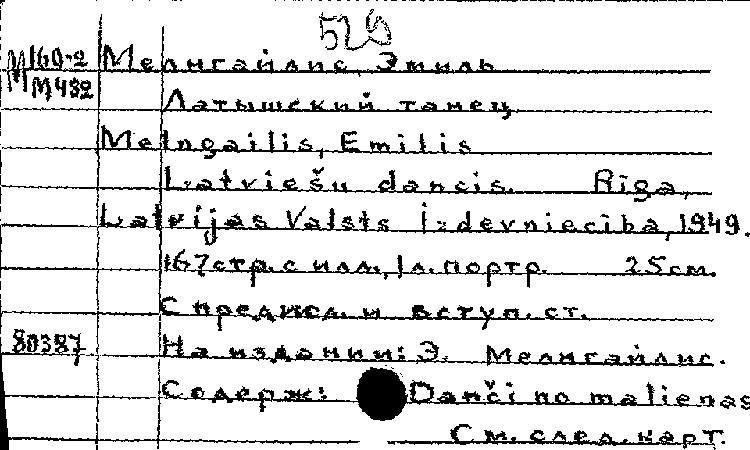 529
М160-2 Мелнгайлис, Эмиль
М432
Латышский танец.
Melngailis, Emilis
Latviešu dancis. Rīga,
Latvijas Valsts Izdevniecība, 1949.
167 стр. с илл., 1 л. портр. 25 см.
С предисл. и вступ. ст.
80387 На издании: Э. Мелнгайлис.
Содерж: Danči no malienas
См. след. карт.